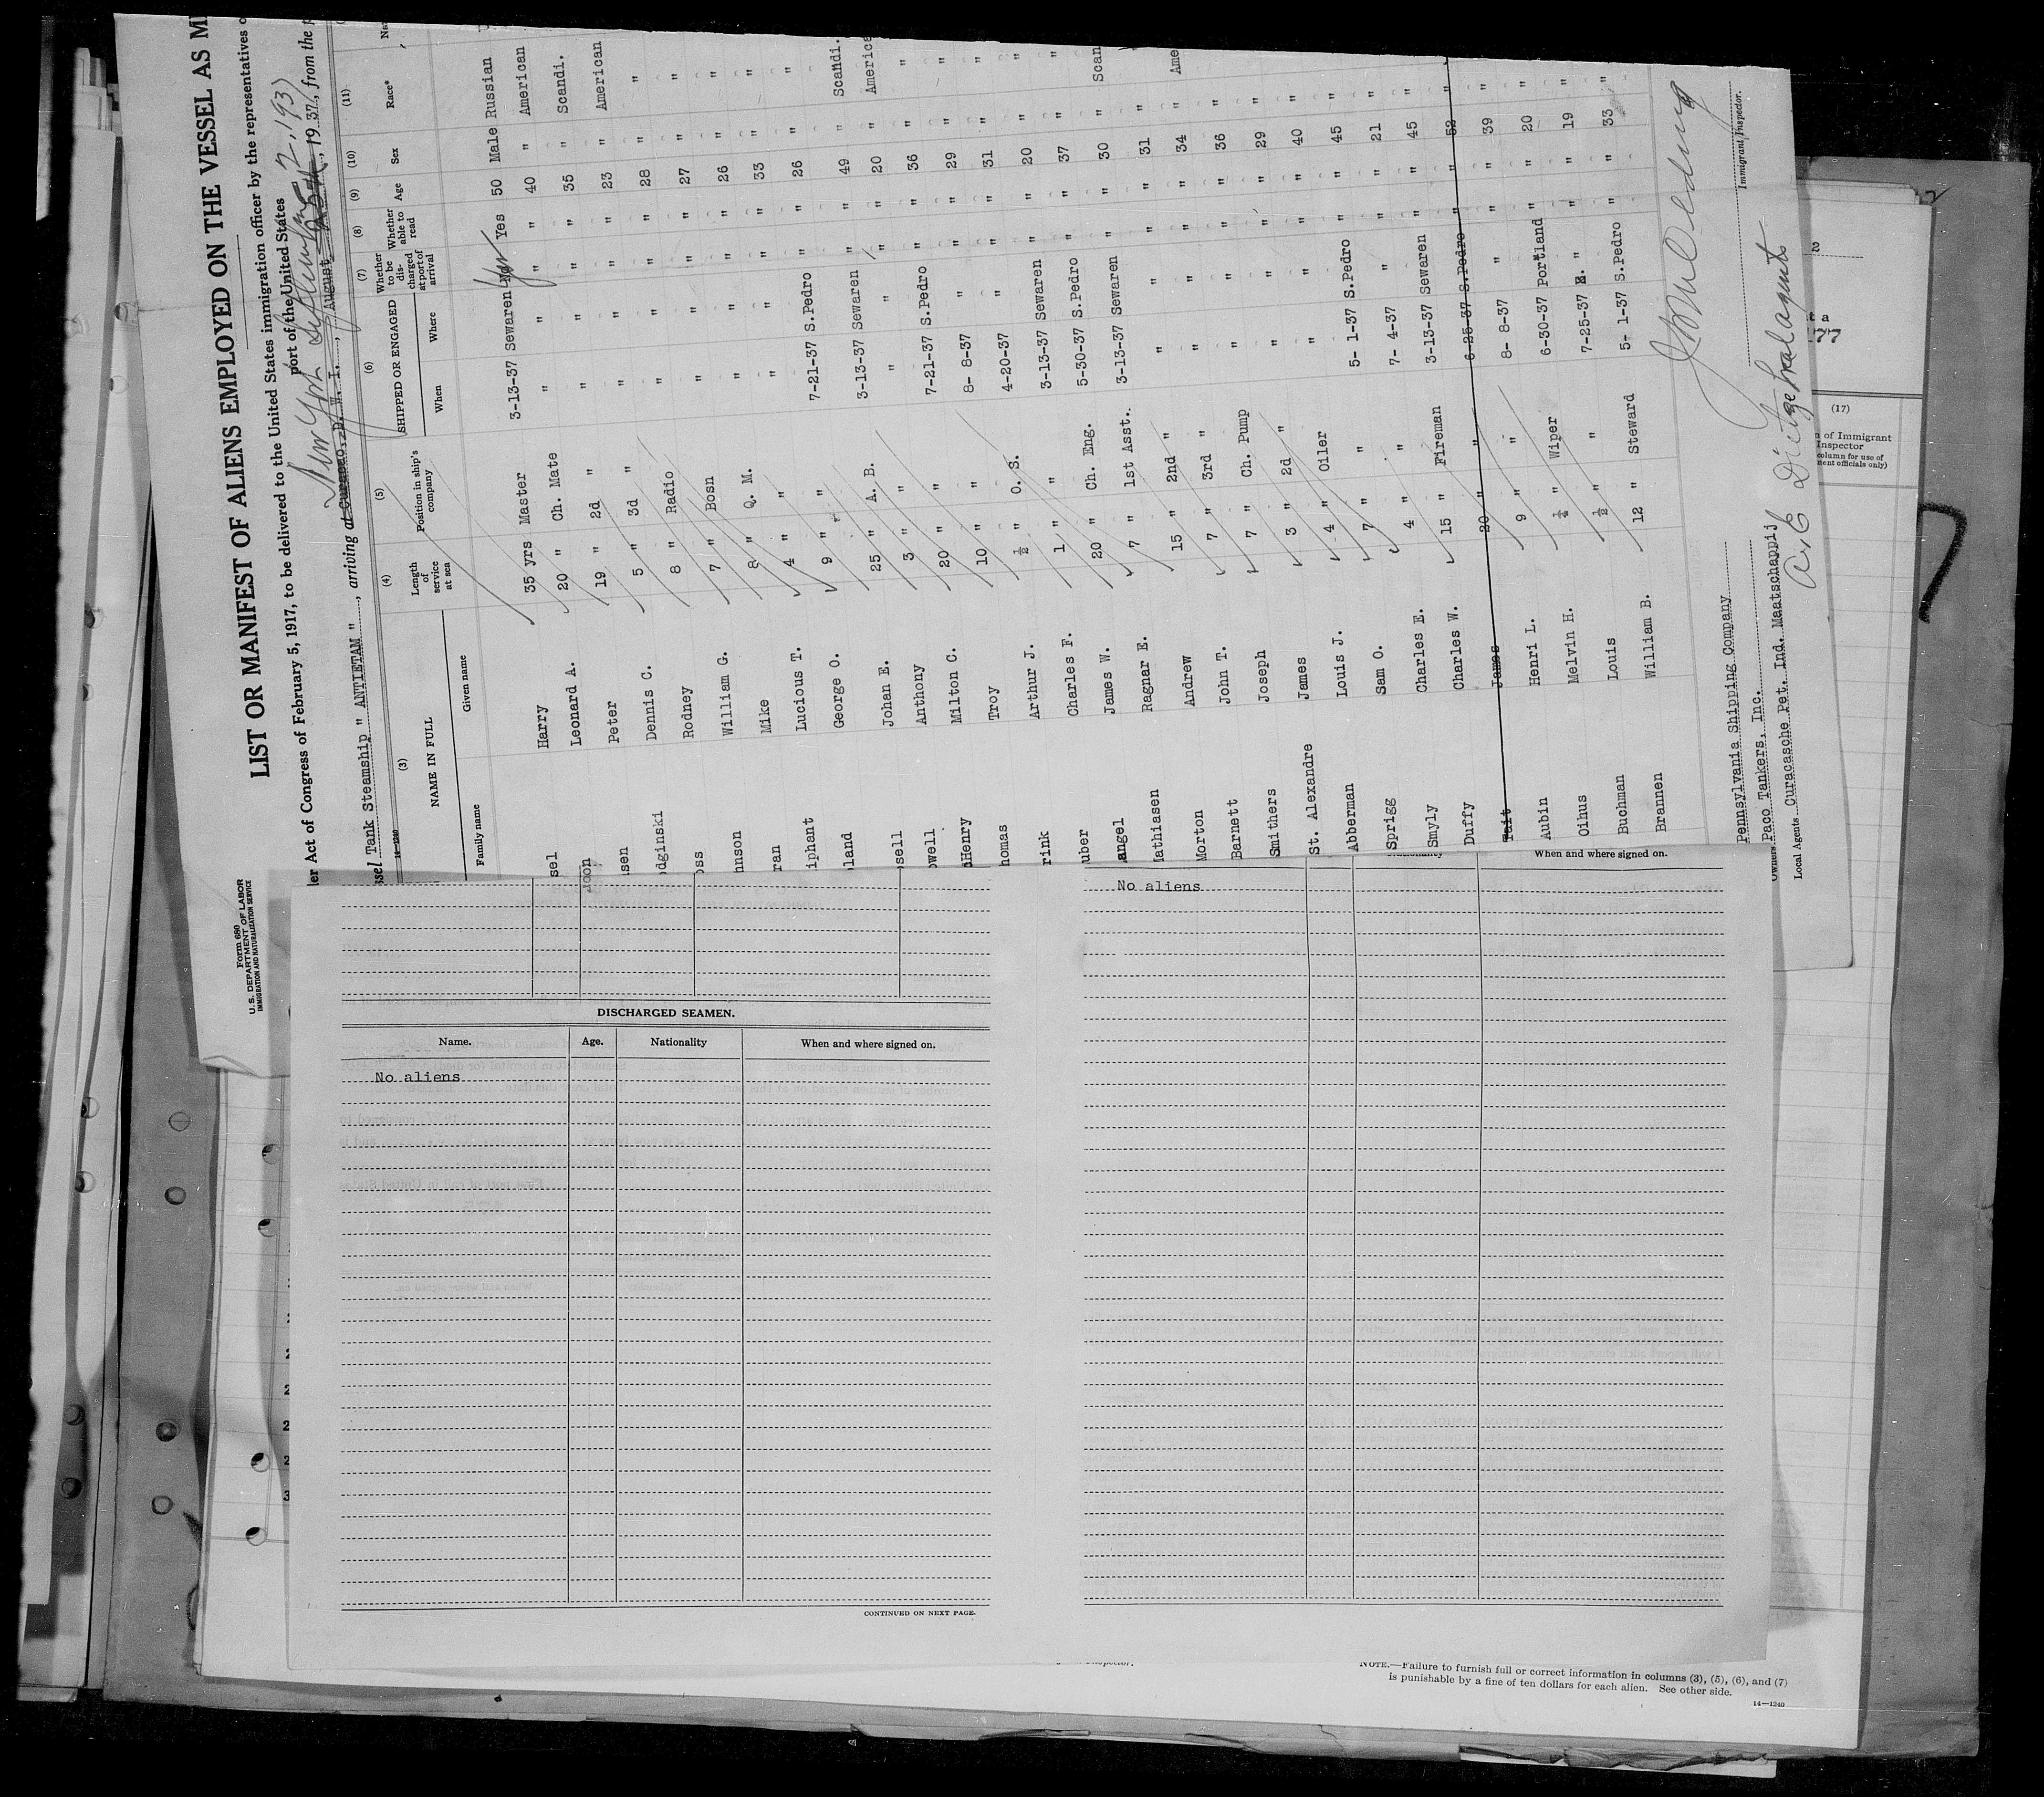 LIST OR MANIFEST OF ALIENS EMPLOYED ON THE VESSEL AS M
Form 680
U. S. DEPARTMENT OF LABOR
IMMIGRATION AND NATURALIZATION SERVICE
der Act of Congress of February 5, 1917, to be delivered to the United States immigration officer by the representatives o
port of the United States
New York September 2, 1937
ssel Tank Steamship " ANTIETAM ", arriving at Curacao, D. W. I., August 25th, 1937, from the
14—1240
(3) (4) (5) (6) (7) (8) (9) (10) (11)
NAME IN FULL Length of service at sea Position in ship's company SHIPPED OR ENGAGED Whether to be discharged at port of arrival Whether able to read Age Sex Race*
Family name Given name When Where
sel Harry 35 yrs Master 3-13-37 Sewaren Yes 50 Male Russian
loon Leonard A. 20 " Ch. Mate " " " " 40 " American
sen Peter 19 " 2d " " " " " 35 " Scandi.
dginski Dennis C. 5 " 3d " " " " " 23 " American
oss Rodney 8 " Radio " " " " 28 " "
hnson William G. 7 " Bosn " " " " 27 " "
ran Mike 8 " Q. M. " " " " 26 " "
iphant Lucious T. 4 " " " " " " 33 " "
land George O. 9 " " 7-21-37 S.Pedro " " 26 " "
sell Johan E. 25 " A. B. 3-13-37 Sewaren " " 49 " Scandi.
owell Anthony 3 " " " " " " 20 " America
Henry Milton C. 20 " " 7-21-37 S.Pedro " " 36 " "
homas Troy 10 " " 8- 8-37 " " " 29 " "
rink Arthur J. ½ " O. S. 4-20-37 " " " 31 " "
uber Charles F. 1 " " 3-13-37 Sewaren " " 20 " "
angel James W. 20 " Ch. Eng. 5-30-37 S.Pedro " " 37 " "
Mathiasen Ragnar E. 7 " 1st Asst. 3-13-37 Sewaren " " 30 " Scan
Morton Andrew 15 " 2nd " " " " " 31 "
Barnett John T. 7 " 3rd " " " " " 34 " Ame
Smithers Joseph 7 " Ch. Pump " " " " 36 " "
St. Alexandre James 3 " 2d " " " " " 29 " "
Abberman Louis J. 4 " Oiler " " " " 40 " "
Sprigg Sam O. 7 " " 5- 1-37 S.Pedro " " 45 " "
Smyly Charles E. 4 " " 7- 4-37 " " " 21 " "
Duffy Charles W. 15 " Fireman 3-13-37 Sewaren " " 45 " "
Tait James 20 " " 6-25-37 S.Pedro " " 52 "
Aubin Henri L. 9 " " 8- 8-37 " " " 39 " "
Oihus Melvin H. ¼ " Wiper 6-30-37 Portland " " 20 " "
Buchman Louis ½ " " 7-25-37 " " " 19 " "
Brannen William B. 12 " Steward 5- 1-37 S.Pedro " " 33 " "
Pennsylvania Shipping Company
Owners Paco Tankers, Inc.
Local Agents Curacasche Pet. Ind. Maatschappij
Immigrant Inspector.
77
(17)
of Immigrant
Inspector
column for use of
ment officials only)
DISCHARGED SEAMEN.
Name. Age. Nationality When and where signed on.
No aliens
CONTINUED ON NEXT PAGE.
When and where signed on.
No aliens
NOTE.—Failure to furnish full or correct information in columns (3), (5), (6), and (7)
is punishable by a fine of ten dollars for each alien. See other side.
14—1240